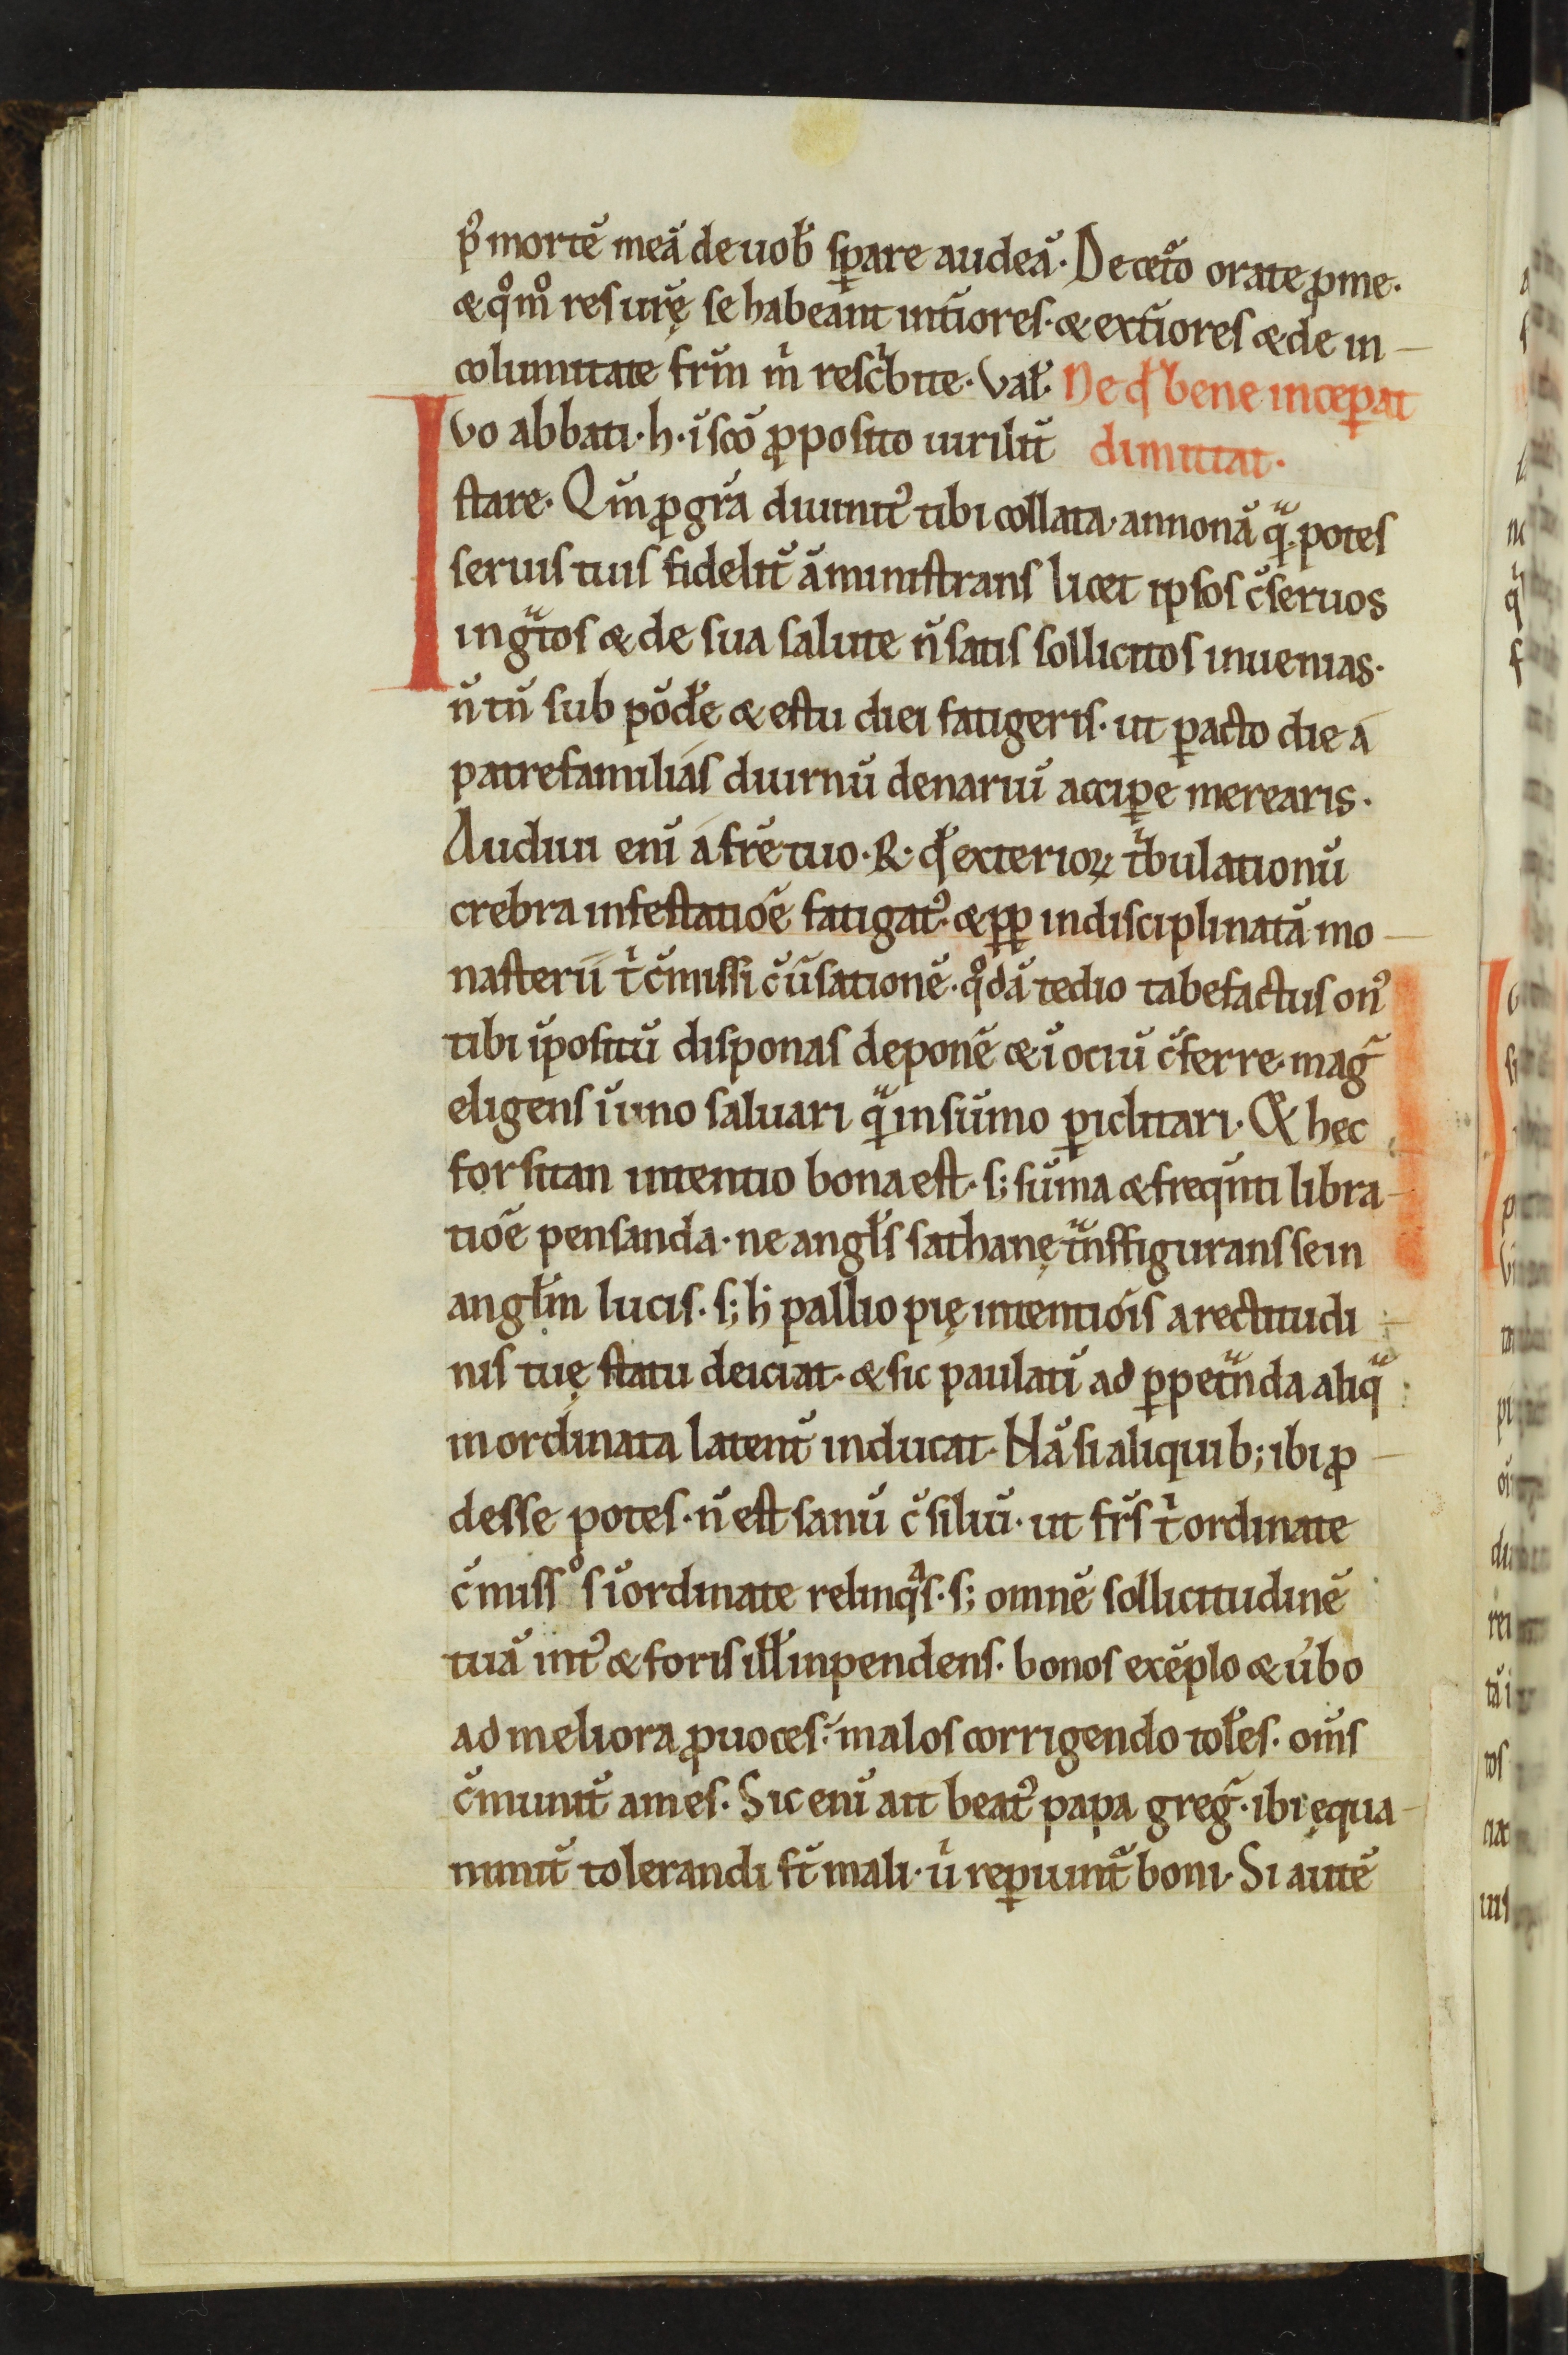 p᷒ mortē meā de uob̄ sꝑare audeā. De cet᷑o orate ꝓ me.
& qͦmͦ res ur̄ę se habeant int̄iores. & ext̄iores & de in-
columitate fr̄m m̄ resc̍bite. Val̄. Ne qd̄ bene inceperat
Ivo abbati. h. ī sc̄o ꝓposito uirilit̄ dimittat.
stare. Qm̄ ꝓ gr̄a diuinit᷒ tibi collata. annonā qᷓ potes
seruis tuis fidelit̄ āministrans licet ipsos c̄seruos
ingᷓtos & de sua salute n̄ satis sollicitos inuenias.
n̄ tn̄ sub pōdēe & estu diei fatigeris. ut ꝑacto die a
patrefamilias diurnū denariū accipe merearis.
Audiui enī a frē tuo. R. qd̄ exterioꝝ t̍bulationū
crebra infestatiōe fatigat᷒. & ꝓp indisciplinatā mo-
nasterii t̍ c̄missi c̄u̅satione̅. qͦdā tedio tabefactus on᷒
tibi īpositū disponas deponē & ī ociū c̄ferre. maḡ
eligens ī imo saluari qᷓ in sūmo ꝑiclitari. Q̄ hęc
forsitan intentio bona est. s; sūma & freqn̄ti libra-
tiōe pensanda. ne angl̄s sathanę tᷓnsfigurans se in
angl̄m lucis. s; h̄ pallio pię intentiōis a rectitudi
nis tuę statu deiciat. & sic paulatī ad ꝑpetᷓnda aliqᷓ
inordinata latent̄ inducat. Nā si aliquib; ibi ꝓ-
desse potes. n̄ est sanū c̄siliū. ut fr̄s t̍ ordinate
c̄missͦs īordinate relinqᷓs. s; omnē sollicitudinē
tuā int᷒ & foris ill̄ inpendens. bonos exēplo & ūbo
ad meliora ꝓuoces. malos corrigendo tol̄es. om̄s
c̄munit̄ ames. Sic enī ait beat᷒ papa greḡ. ibi ęqua-
nimit̄ tolerandi st̄ mali. u̍ reꝑiunt᷑ boni. Si autē